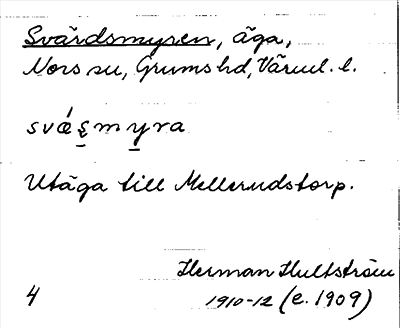 Svärdsmyren, äga,
Nors sn, Grums hd, Värml. l.
svǽs̠my̠ra
Utäga till Mellerudstorp.
Herman Hultström
4 1910-12 (e. 1909)